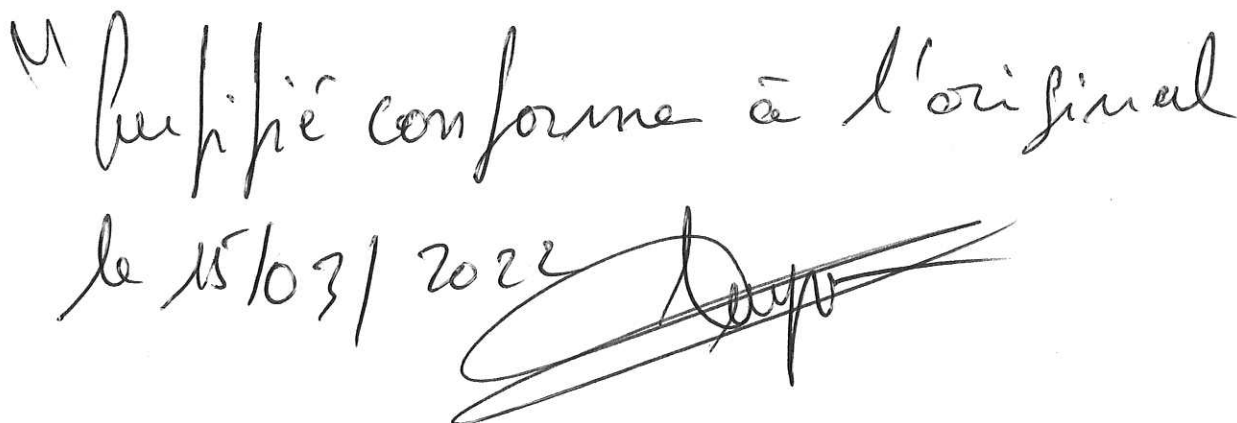 " Certifié conforme à l'original
le 15/03/2022